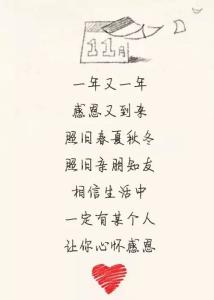 11月
一年又一年
感恩又到来
照旧春夏秋冬
照旧亲朋知友
相信生活中
一定有某个人
让你心怀感恩